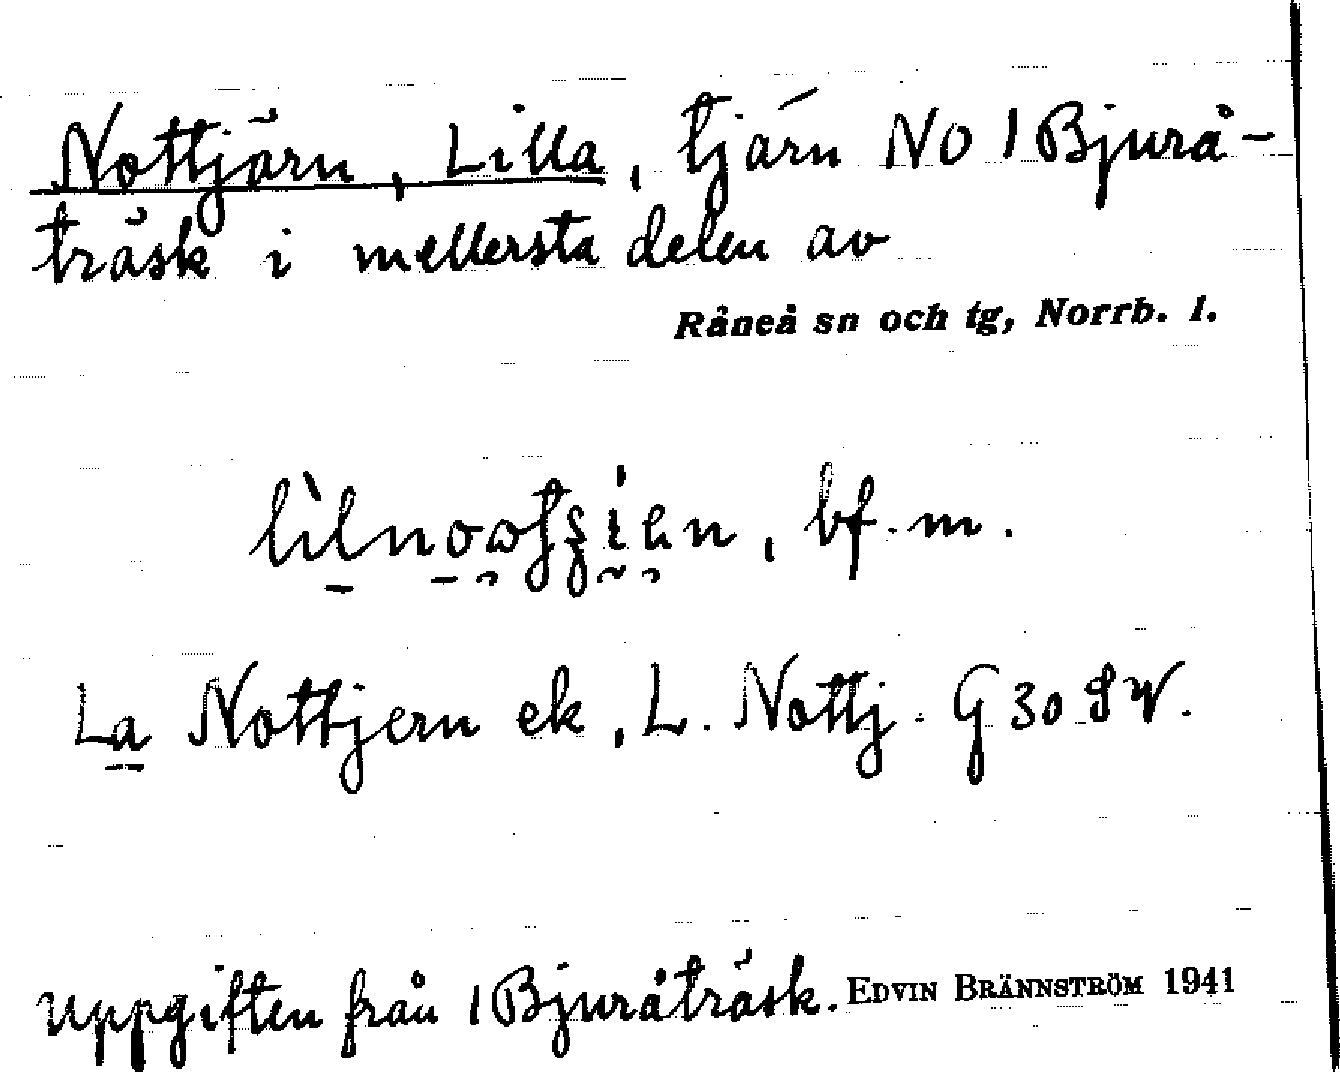 Nottjärn, Lilla, tjärn NO 1 Bjurå-
träsk i mellersta delen av
Råneå sn och tg, Norrb. l.
bf. m.
La Nottjern ek, L. Nottj. G 30 SV.
Uppgiften från 1 Bjuråträsk. EDVIN BRÄNNSTRÖM 1941